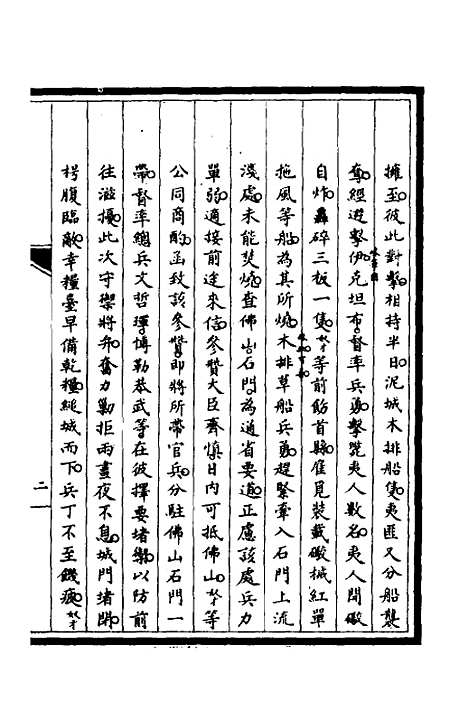 擁至彼此對擊相持半日泥城木排船隻夷匪又分船襲
奪經遊擊伊克坦布督率兵勇擊斃夷人數名夷人開礮
自炸轟碎三板一隻奴才等前飭首縣雇覓裝載礮械紅單
拖風等船為其所燒木排草船兵勇趕緊牽入石門上流
淺處未能焚燒查佛山石門為通省要道正慮該處兵力
單弱適接前途來信參贊大臣齊慎日內可抵佛山奴才等
公同商酌函致該參贊即將所帶官兵分駐佛山石門一
帶督率總兵文哲琿博勒恭武等在彼擇要堵禦以防前
往滋擾此次守禦將弁奮力勦拒兩晝夜不息城門堵閉
枵腹臨敵幸糧臺早備乾糧縋城而下兵丁不至饑疲奴才
二